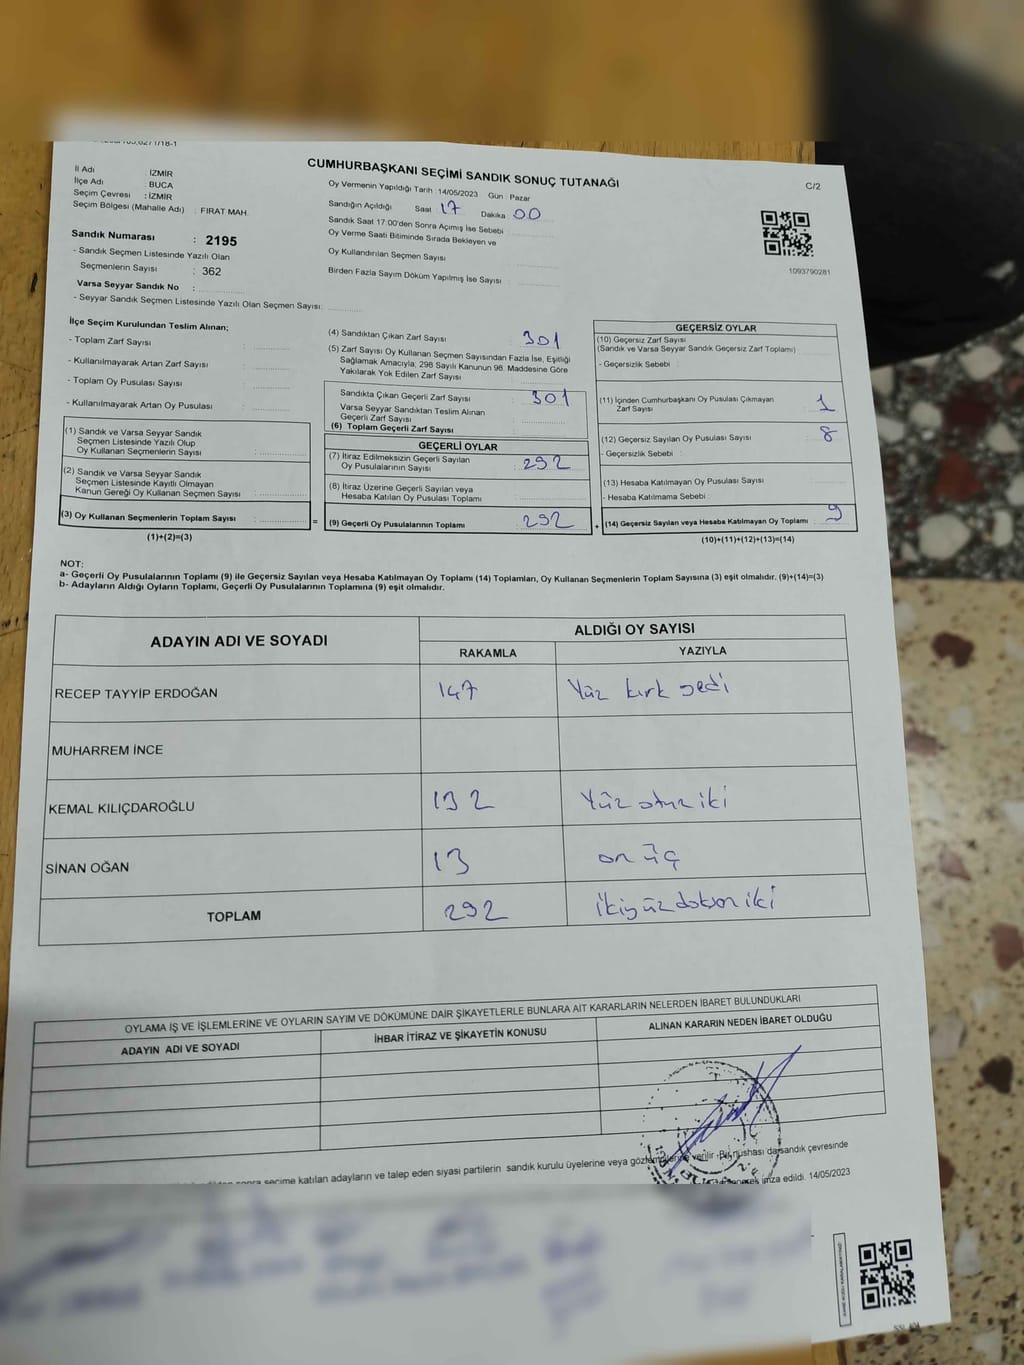 CUMHURBAŞKANI SEÇİMİ SANDIK SONUÇ TUTANAĞI
C/2
İl Adı : İZMİR
İlçe Adı : BUCA
Seçim Çevresi : İZMİR
Seçim Bölgesi (Mahalle Adı) : FIRAT MAH.
Sandık Numarası : 2195
- Sandık Seçmen Listesinde Yazılı Olan
Seçmenlerin Sayısı : 362
Varsa Seyyar Sandık No :
- Seyyar Sandık Seçmen Listesinde Yazılı Olan Seçmen Sayısı:
Oy Vermenin Yapıldığı Tarih :14/05/2023 Gün : Pazar
Sandığın Açıldığı Saat 17 Dakika 00
Sandık Saat 17:00'den Sonra Açımış İse Sebebi :
Oy Verme Saati Bitiminde Sırada Bekleyen ve
Oy Kullandırılan Seçmen Sayısı
Birden Fazla Sayım Döküm Yapılmış İse Sayısı :
1093790281
İlçe Seçim Kurulundan Teslim Alınan;
- Toplam Zarf Sayısı :
- Kullanılmayarak Artan Zarf Sayısı :
- Toplam Oy Pusulası Sayısı :
- Kullanılmayarak Artan Oy Pusulası :
(1) Sandık ve Varsa Seyyar Sandık
Seçmen Listesinde Yazılı Olup
Oy Kullanan Seçmenlerin Sayısı :
(2) Sandık ve Varsa Seyyar Sandık
Seçmen Listesinde Kayıtlı Olmayan
Kanun Gereği Oy Kullanan Seçmen Sayısı :
(3) Oy Kullanan Seçmenlerin Toplam Sayısı :
(1)+(2)=(3)
=
(4) Sandıktan Çıkan Zarf Sayısı : 301
(5) Zarf Sayısı Oy Kullanan Seçmen Sayısından Fazla İse, Eşitliği
Sağlamak Amacıyla; 298 Sayılı Kanunun 98. Maddesine Göre
Yakılarak Yok Edilen Zarf Sayısı
Sandıkta Çıkan Geçerli Zarf Sayısı : 301
Varsa Seyyar Sandıktan Teslim Alınan
Geçerli Zarf Sayısı
(6) Toplam Geçerli Zarf Sayısı
GEÇERLİ OYLAR
(7) İtiraz Edilmeksizin Geçerli Sayılan
Oy Pusulalarının Sayısı : 292
(8) İtiraz Üzerine Geçerli Sayılan veya
Hesaba Katılan Oy Pusulası Toplamı :
(9) Geçerli Oy Pusulalarının Toplamı : 292
+
GEÇERSİZ OYLAR
(10) Geçersiz Zarf Sayısı
(Sandık ve Varsa Seyyar Sandık Geçersiz Zarf Toplamı)
- Geçersizlik Sebebi :
(11) İçinden Cumhurbaşkanı Oy Pusulası Çıkmayan
Zarf Sayısı : 1
(12) Geçersiz Sayılan Oy Pusulası Sayısı : 8
- Geçersizlik Sebebi :
(13) Hesaba Katılmayan Oy Pusulası Sayısı
- Hesaba Katılmama Sebebi :
(14) Geçersiz Sayılan veya Hesaba Katılmayan Oy Toplamı : 9
(10)+(11)+(12)+(13)=(14)
NOT:
a- Geçerli Oy Pusulalarının Toplamı (9) ile Geçersiz Sayılan veya Hesaba Katılmayan Oy Toplamı (14) Toplamları, Oy Kullanan Seçmenlerin Toplam Sayısına (3) eşit olmalıdır. (9)+(14)=(3)
b- Adayların Aldığı Oyların Toplamı, Geçerli Oy Pusulalarının Toplamına (9) eşit olmalıdır.
ADAYIN ADI VE SOYADI
ALDIĞI OY SAYISI
RAKAMLA YAZIYLA
RECEP TAYYİP ERDOĞAN 147 Yüz kırk yedi
MUHARREM İNCE
KEMAL KILIÇDAROĞLU 132 Yüz otuz iki
SİNAN OĞAN 13 on üç
TOPLAM 292 ikiyüzdoksan iki
OYLAMA İŞ VE İŞLEMLERİNE VE OYLARIN SAYIM VE DÖKÜMÜNE DAİR ŞİKAYETLERLE BUNLARA AİT KARARLARIN NELERDEN İBARET BULUNDUKLARI
ADAYIN ADI VE SOYADI İHBAR İTİRAZ VE ŞİKAYETİN KONUSU ALINAN KARARIN NEDEN İBARET OLDUĞU
sonra seçime katılan adayların ve talep eden siyasi partilerin sandık kurulu üyelerine veya verilir. Bir nüshası da sandık çevresinde
imza edildi. 14/05/2023